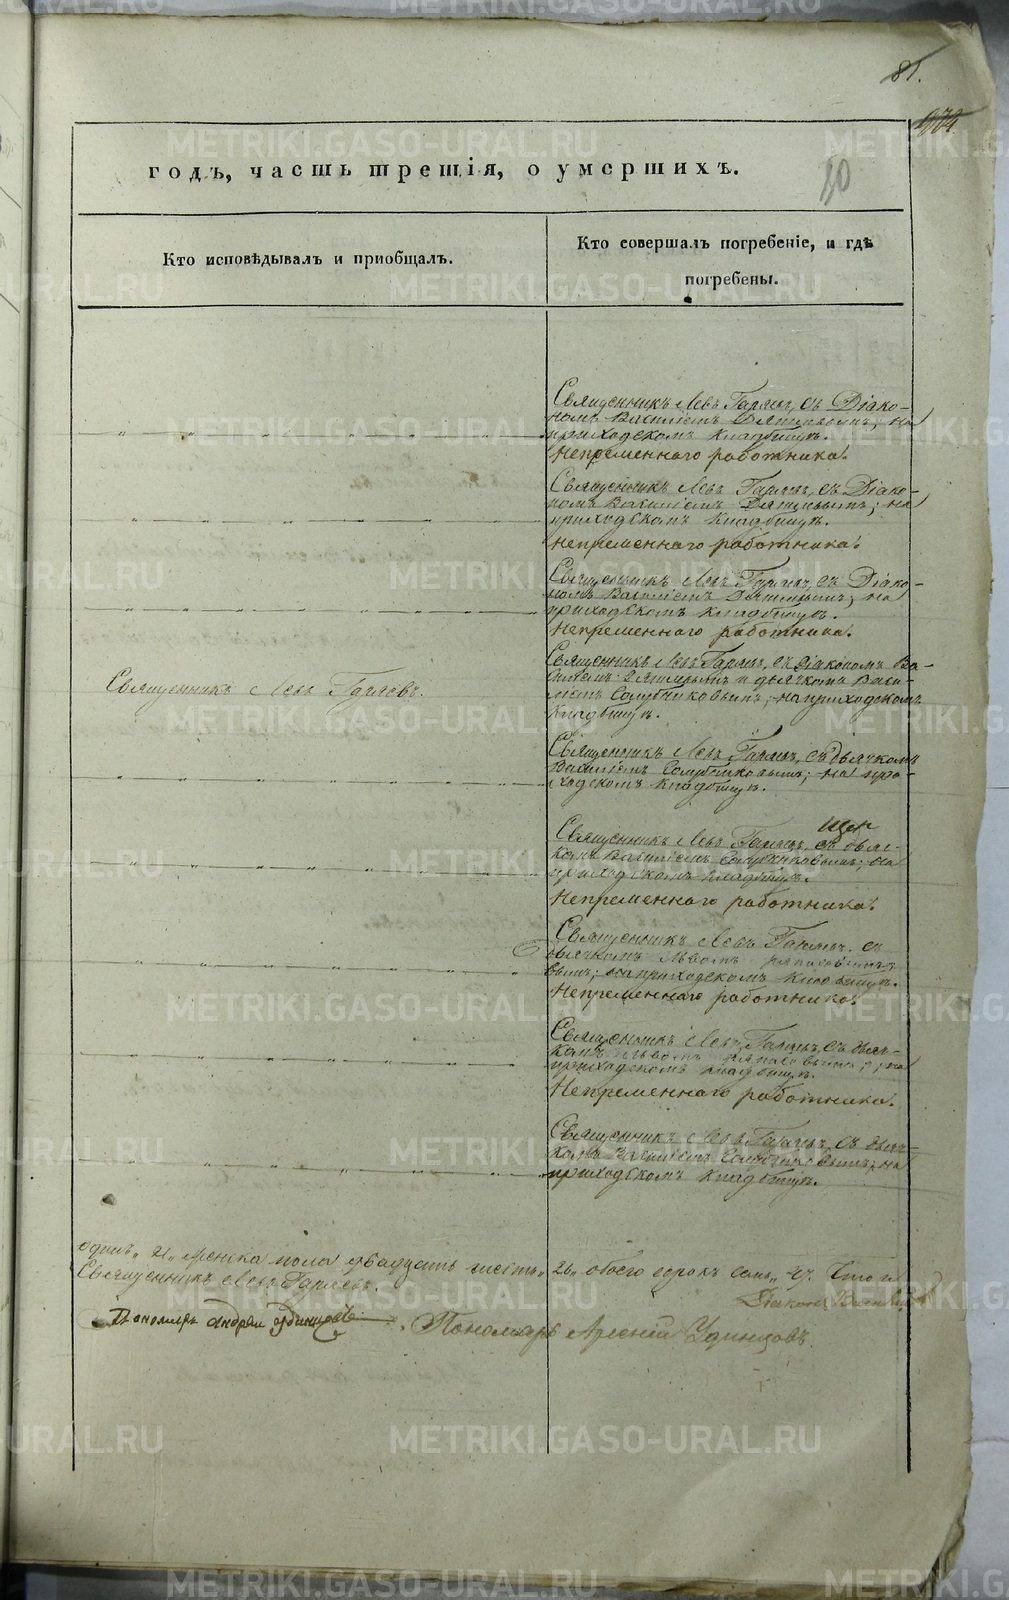 81.
годъ, часть третія, о умершихъ.
10
Кто исповѣдывалъ и пріобщалъ.
Кто совершалъ погребеніе, и гдѣ
погребены.
Священникъ Левъ Гаряевъ, съ Діако-
номъ Василіемъ на
приходскомъ кладбищѣ.
Непременнаго работника.
Священникъ Левъ Гаряевъ, съ Діако-
номъ Василіемъ на
приходскомъ кладбищѣ.
Непременнаго работника.
Священникъ Левъ Гаряевъ, съ Діако-
номъ Василіемъ на
приходскомъ кладбищѣ.
Непременнаго работника.
Священникъ Левъ Гаряевъ.
Священникъ Левъ Гаряевъ, съ Діакономъ Ва-
силіемъ и дьячкомъ Васи-
ліемъ на приходскомъ
кладбищѣ.
Священникъ Левъ Гаряевъ, съ дьячкомъ
Василіемъ на при-
ходскомъ кладбищѣ.
Священникъ Левъ Гаряевъ, съ дьяч-
комъ Василіемъ на
приходскомъ кладбищѣ.
Непременнаго работника.
Священникъ Левъ Гаряевъ, съ
дьячкомъ Львомъ
на приходскомъ кладбищѣ.
Непременнаго работника.
Священникъ Левъ Гаряевъ, съ дьяч-
комъ Львомъ на
приходскомъ кладбищѣ.
Непременнаго работника.
Священникъ Левъ Гаряевъ, съ дьяч-
комъ Василіемъ на
приходскомъ кладбищѣ.
одинъ, 21, женска пола двадцать шесть, 26, обоего сорокъ семь, 47. Что и
Священникъ Левъ Гаряевъ.
Діаконъ
Пономарь Андрей Удинцовъ. Пономарь Арсеній Удинцовъ
METRIKI.GASO-URAL.RU